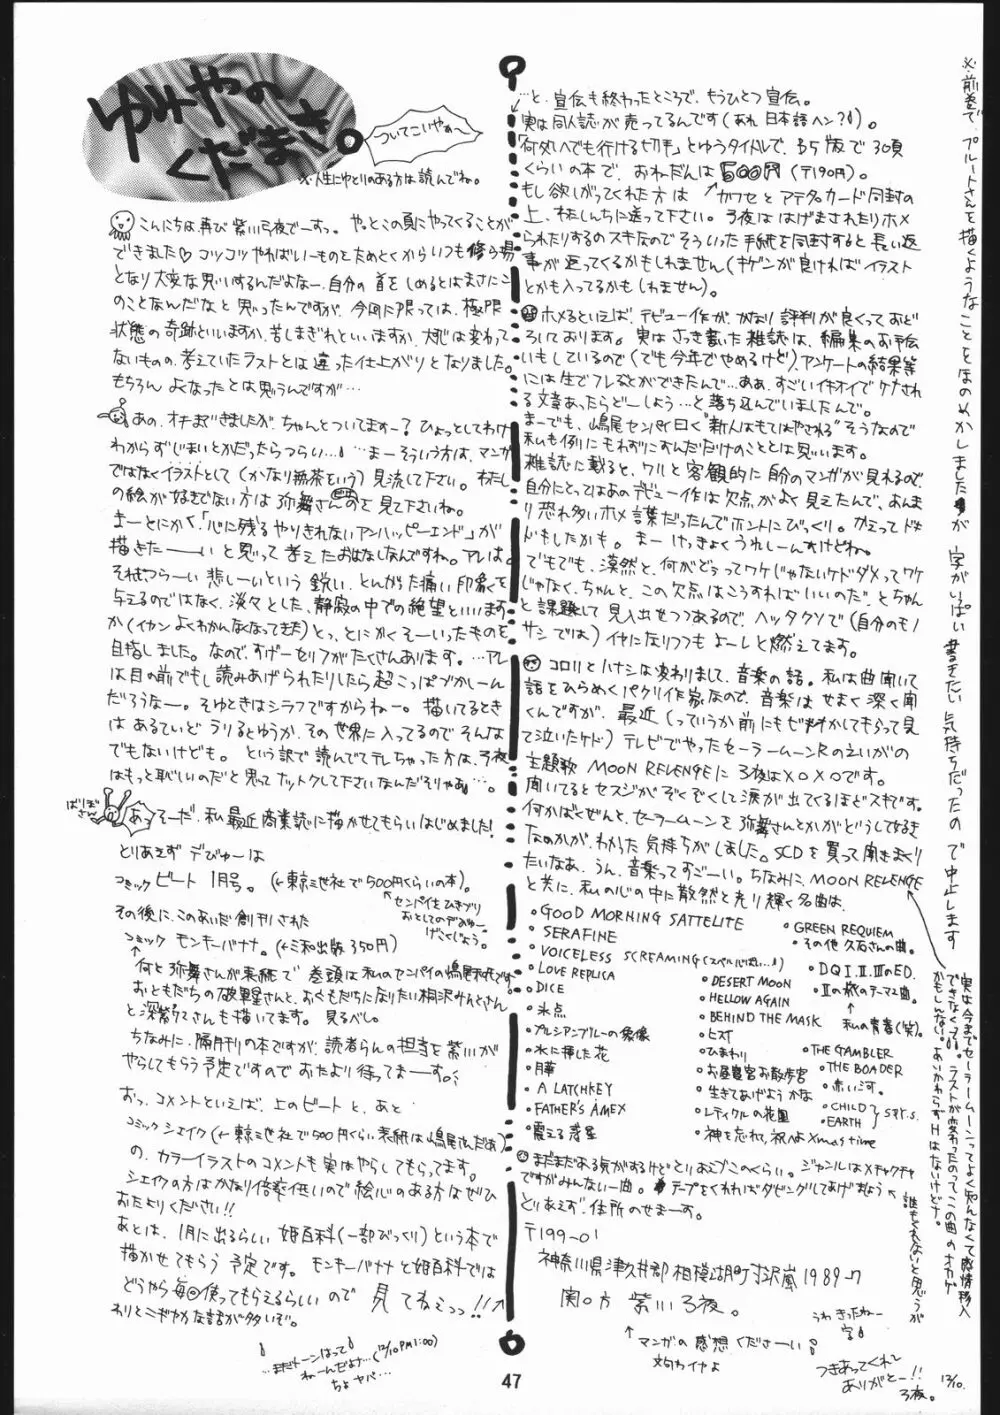 ゆみやの
くだまき。
ついてこいやぁ〜
※人生にゆとりのある方は読んでね。
こんにちは再び紫川弓夜でーすっ。やっとこの頁にやってくることが
できました♡コツコツやればいーものをためとくからいつも修ら場
となり大変な思いするんだよなー、自分の首をしめるとはまさにこ
のことなんだなと思ったんですが、今回に限っては、極限
状態の奇跡といいますか、苦しまぎれといいますか、大すじは変わって
ないものの、考えていたラストとは違った仕上がりとなりました。
もちろん よくなったとは思うんですが…
あの、オチまできましたが、ちゃんとついてますー?ひょっとしてわけ
わからずじまいとかだったらつらい…! …まーそういう方は、マンガ
ではなくイラストとして(かなり無茶という)見流して下さい。わたし
の絵が好きでない方は弥舞さんのを見て下さいね。
まーとにかく「心に残るやりきれないアンハッピーエンド」が
描きたーーーいと思って考えたおはなしなんですね。アレは。
それもつらーい 悲しーいという 鋭い、とんがった痛い印象を
与えるのではなく、淡々とした、静寂の中での絶望といいます
か(イカン よくわかんなくなってきた)とっ、とにかくそーいったものを
目指しました。なので、すげーセリフがたくさんあります。…アレ
は目の前でもし読みあげられたりしたら超こっぱづかしーん
だろうなー。そゆときはシラフですからねー。描いてるとき
は あるていど うりるとゆうか、その世界に入ってるのでそんな
でもないけども。という訳で読んでてテレちゃった方は、弓夜
はもっと恥しいのだと思ってナットクして下さいなんだそりゃあ…。
ばりぼりさん
あっそーだ、私最近商業誌に描かせてもらいはじめました!
とりあえず デびゅーは
コミック ビート 1月号。(←東京三世社で500円くらいの本)。
その後に、このあいだ創刊された
コミック モンキーバナナ。(←三和出版350円)
何と弥舞さんが表紙で 巻頭は私のセンパイの嶋尾和さんです。
おともだちの破軍星さんと、おともだちになりたい桐沢みんとさん
と深紫りすさんも描いてます。見るべし。
ちなみに、隔月刊の本ですが、読者らんの担当を紫川が
やらしてもらう予定ですので おたより待ってまーす。
おっ、コメントといえば、上のビートと、あと
コミック シェイク(←東京三世社で500円くらい 表紙は嶋尾さんだあ)
の、カラーイラストのコメントも実はやらしてもらってます。
シェイクの方はかなり倍率低いので絵心のある方はぜひ
おたよりください!!
あとは、1月に出るらしい 姫百科(一部びっくり)という本で
描かせてもらう 予定です。モンキーバナナと姫百科では
どうやら毎回使ってもらえるらしいので 見てねえっっ!!
わりとニギやかな話が多いぞ。
…まだトーンはって
ねーんだよナ…(12/10 PM1:00)
ちょヤバ…
…と、宣伝も終わったところで、もうひとつ宣伝。
実は同人誌が売ってるんです(あれ 日本語ヘン?)。
「何処へでも行ける切手」とゆうタイトルで、B5版で30頁
くらいの本で、おねだんは500円(〒190円)。
もし欲しがってくれた方は カワセとアテ名カード同封の
上、わたしんちに送って下さい。弓夜ははげまされたりホメ
られたりするのスキなのでそういった手紙を同封すると長い返
事が返ってくるかもしれません(キゲンが良ければイラスト
とかも入ってるかもしれません)。
ホメるといえば、デビュー作が、かなり評判が良くっておど
ろいております。実はさっき書いた雑誌は、編集のお手伝
いもしているので(でも今年でやめるけど)、アンケートの結果等
には生でフレることができたんで…ああ、すごいイキオイでケナされ
る文章あったらどーしよう…と落ち込んでいましたんで。
まーでも、嶋尾センパイ曰く“新人はもてはやされる”そうなので
私も例にもれずにすんだだけのこととは思います。
雑誌に載ると、ワリと客観的に自分のマンガが見れるので、
自分にとってはあのデビュー作は欠点がよく見えたんで、あんま
り恐れ多いホメ言葉だったんでホントにびっくり。かえってドキ
ドキもしたかも。まー けっきょくうれしーんすけどね。
でもでも、漠然と、何がどうってワケじゃないケドダメってワケ
じゃなく、ちゃんと、この欠点はこうすればいいのだ、とちゃん
と課題として見入出せつつあるので、ヘッタクソで(自分のモノ
サシでは)イヤになりつつも よーしと燃えてます。
コロリとハナシは変わりまして、音楽の話。私は曲聞いて
話をひらめくパクリ作家なので、音楽はせまく深く聞
くんですが、最近(っていうか前にもビデオかしてもらって見
て泣いたケド)テレビでやったセーラームーンRのえいがの
主題歌 MOON REVENGEに弓夜はメロメロです。
聞いてるとセスジがぞくぞくして涙が出てくるほどスキです。
何かばくぜんと、セーラームーンを弥舞さんとかがどうして好き
なのかが、わかった気持ちがしました。SCDを買って聞きまくり
たいなあ、うん、音楽ってすごーい。ちなみに、MOON REVENGE
と共に、私の心の中に散然と光り輝く名曲は、
・GOOD MORNING SATTELITE
・SERAFINE
・VOICELESS SCREAMING(スペル心ぱい…)
・LOVE REPLICA
・DICE
・氷点
・プルシアンブルーの肖像
・水に挿した花
・月華
・A LATCHKEY
・FATHER'S AMEX
・震える惑星
・DESERT MOON
・HELLOW AGAIN
・BEHIND THE MASK
・ヒズイ
・ひまわり
・お昼寝宮お散歩宮
・生きてあげようかな
・レティクルの花園
・神を忘れて、祝へよXmas time
・GREEN REQUIEM
・その他 久石さんの曲。
・DQⅠ.Ⅱ.ⅢのED.
・Ⅱの旅のテーマ2曲。
私の青春(笑)。
・THE GAMBLER
・THE BOADER
・赤い河。
・CHILD
・EARTH
まだまだある気がするけどとりあえずこのくらい。ジャンルはメチャクチャ
ですがみんないー曲。テープをくれればダビングしてあげましょう
誰もくれないと思うが
とりあえず、住所のせまーす。
〒199-01
神奈川県津久井郡相模湖町寸沢嵐1989-7
関口方 紫川弓夜。
マンガの感想くださーい!
文句わイヤよ
うわ きったねー
字
つきあってくれて
ありがとー!!
弓夜。
12/10.
※前巻で、プルートさんを描くようなことをほのめかしましたが 字がいっぱい書きたい気持ちだったので中止します
実は今までセーラームーンってよく知んなくて感情移入
できなくって。ラストが変わったのってこの曲のオカゲ
かもしんない。あいかわらずHはないけどナ。
47